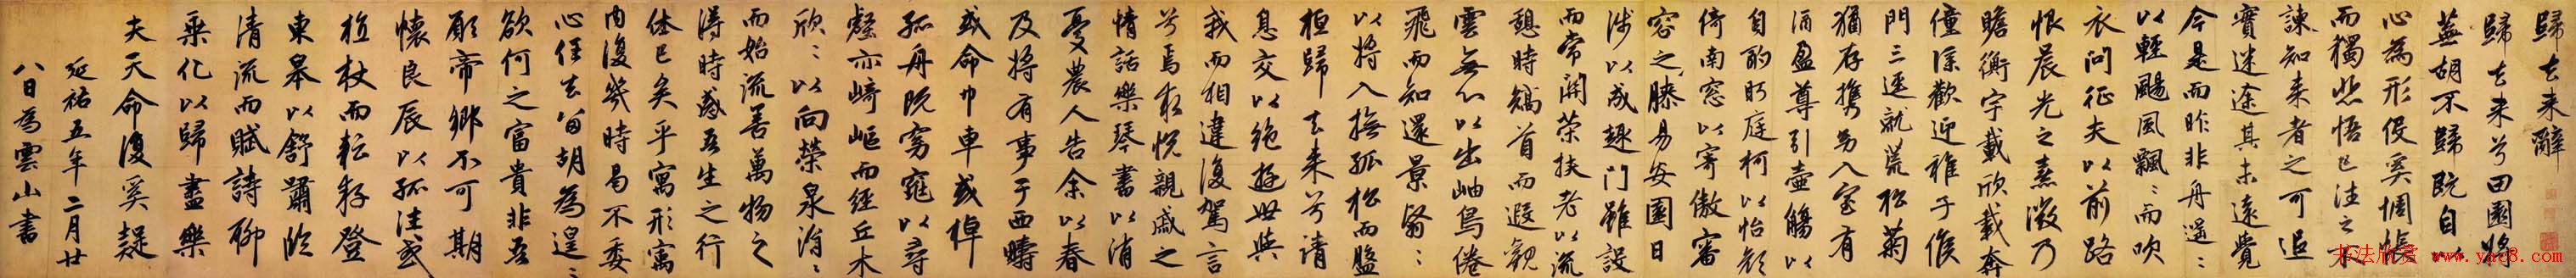 歸去来辭
歸去来兮田園將
蕪胡不歸既自以
心為形役奚惆悵
而獨悲悟已往之不
諫知来者之可追
實迷途其未遠覺
今是而昨非舟遥〻
以輕颺風飄〻而吹
衣問征夫以前路
恨晨光之熹微乃
瞻衡宇載欣載奔
僮僕歡迎稚子候
門三逕就荒松菊
猶存携幼入室有
酒盈尊引壺觴以
自酌眄庭柯以怡顔
倚南窓以寄傲審
容之膝易安園日
涉以成趣门雖設
而常關策扶老以流
憩時矯首而遐觀
雲無心以出岫鳥倦
飛而知還景翳〻
以將入撫孤松而盤
桓歸去来兮请
息交以絶遊世與
我而相違復駕言
兮焉求悦親戚之
情話樂琴書以消
憂農人告余以春
及將有事于西疇
或命巾車或棹
孤舟既窈窕以尋
壑亦崎嶇而經丘木
欣〻以向榮泉涓〻
而始流善萬物之
得時感吾生之行
休已矣乎寓形寓
内復幾時曷不委
心任去留胡為遑〻
欲何之富貴非吾
願帝鄉不可期
懷良辰以孤往或
植杖而耘耔登
東皋以舒嘯臨
清流而賦詩聊
乘化以歸盡樂
夫天命復奚疑
延祐五年二月廿
八日為雲山書
书法欣赏 www.yac8.com